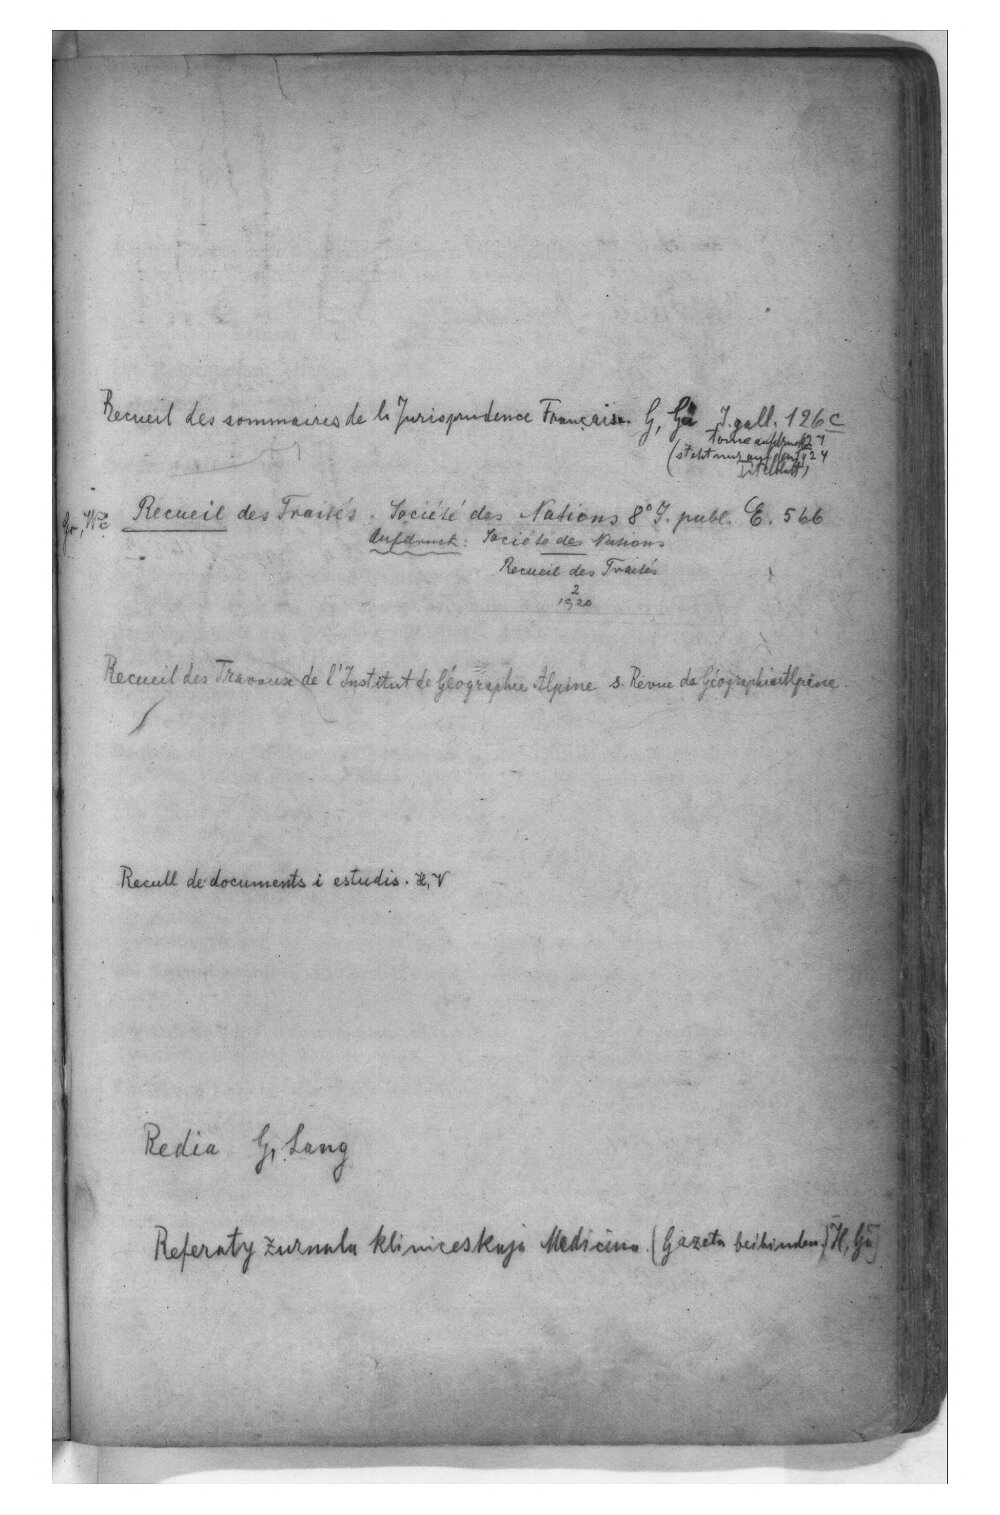 Recueil des sommaires de la Jurisprudence Française. G, Gä J. gall. 126 c
(steht nur auf dem
Titelblatt)
Gr, Wc Recueil des Traités. Société des Nations 8° J. publ. E. 566
Aufdruck: Société des Nations
Recueil des Traités
2
1920
Recueil des Travaux de l'Institut de Géographie Alpine s. Revue de Géographie Alpine.
Recull de documents i estudis. H, V
Redia G, Lang
Referaty žurnala kliniceskaja Medicina. (Gazeta beibinden) [H, Gä]